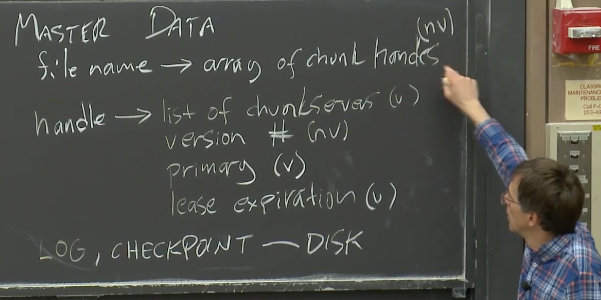 MASTER DATA
(nv)
file name → array of chunk handes
handle → list of chunkservers (v)
version # (nv)
primary (v)
lease expiration (v)
LOG, CHECKPOINT — DISK
FIRE
CLASSROOM
MAINTENANCE
PROBLEM